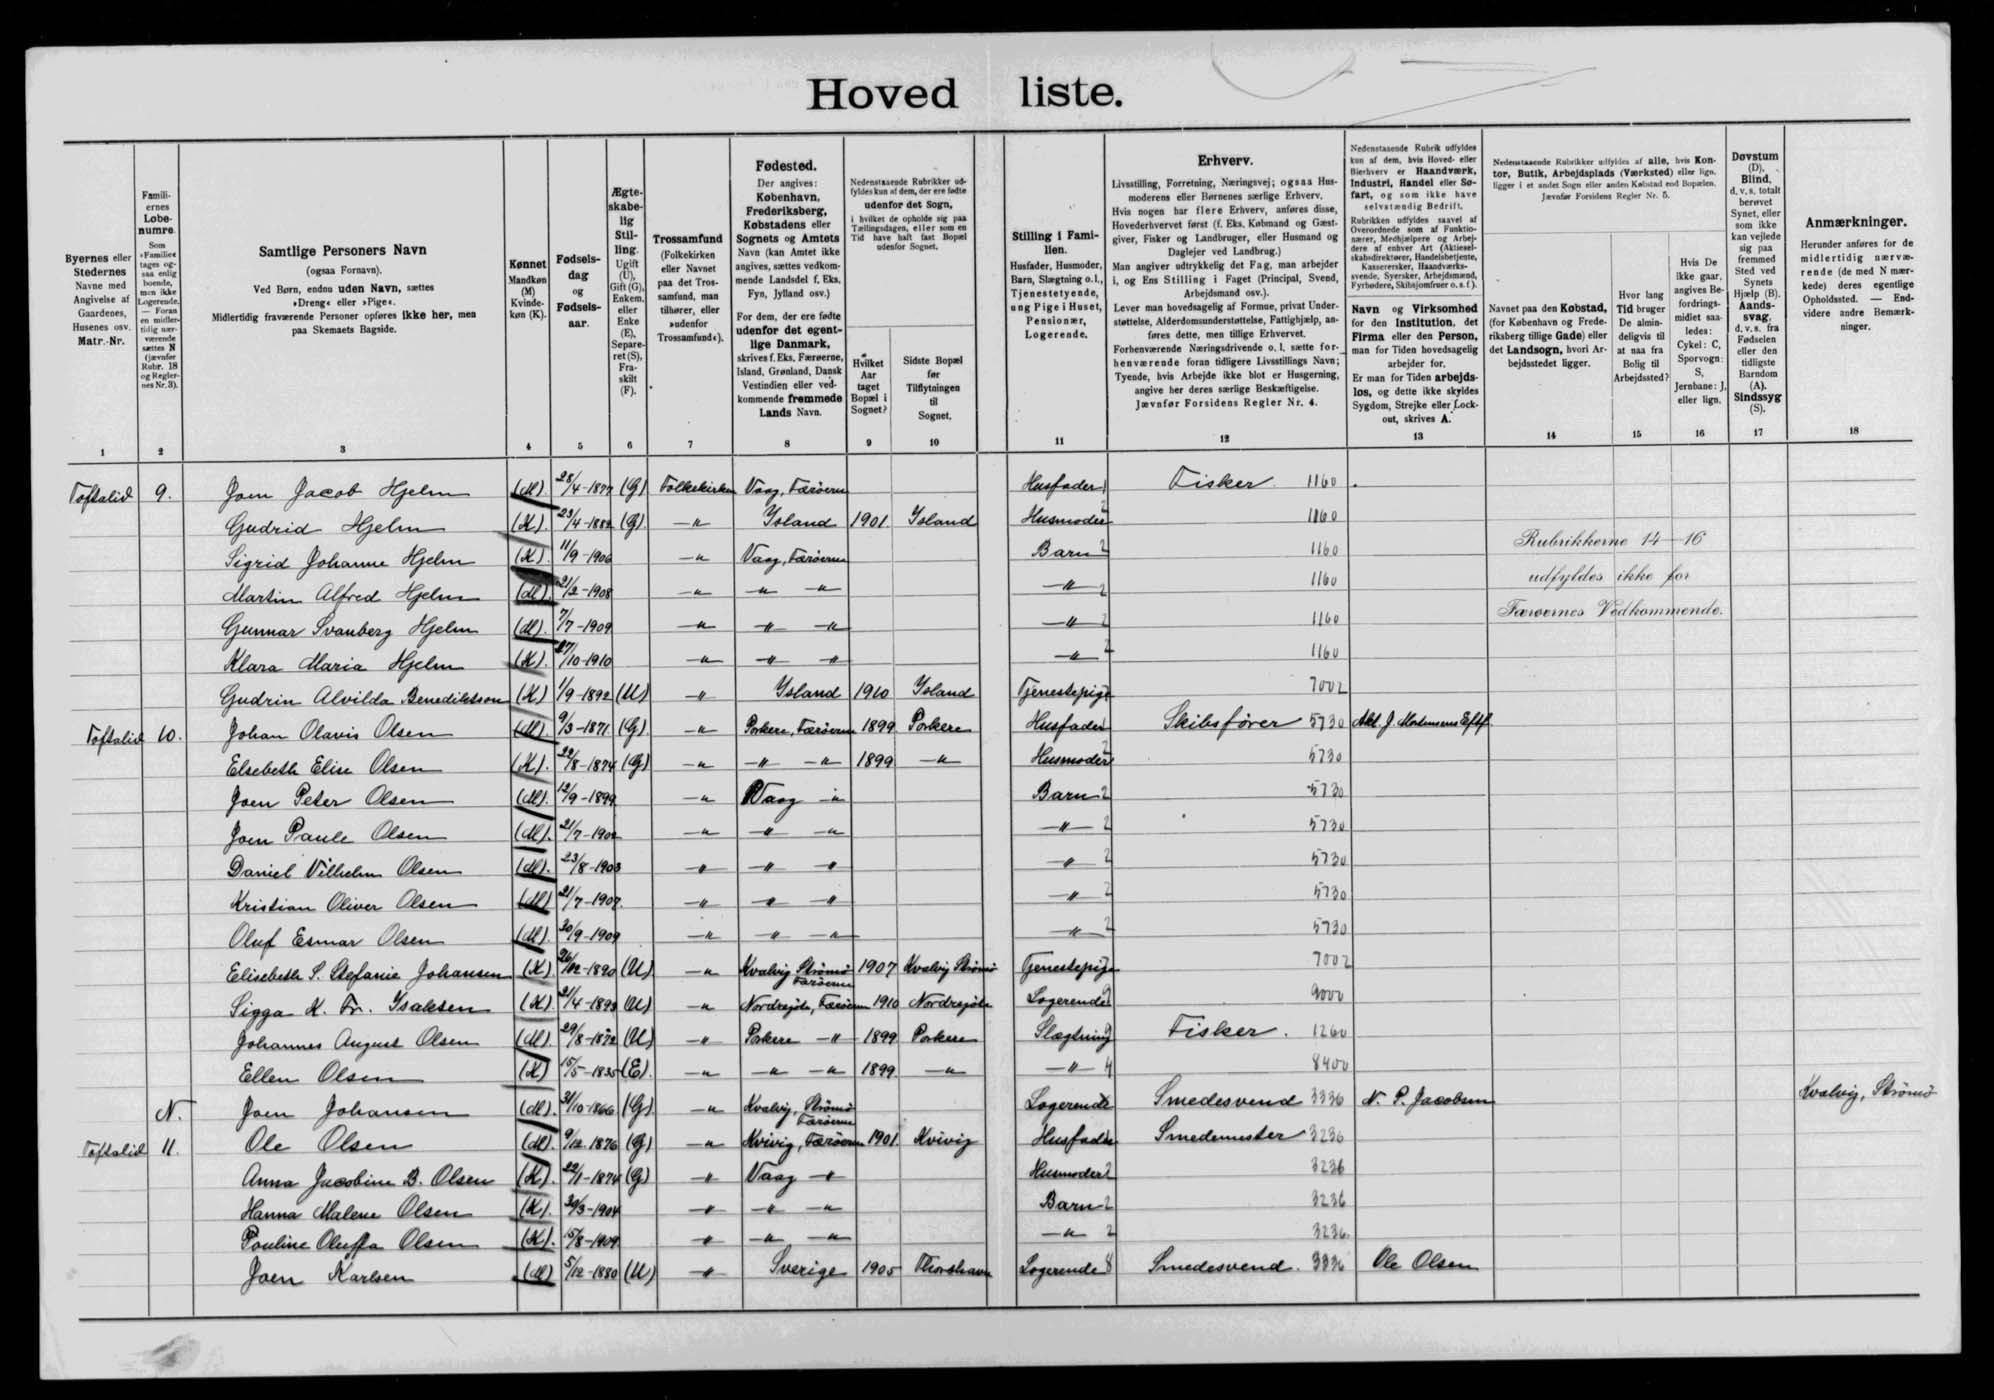 Hoved liste.
Byernes eller Stedernes Navne med Angivelse af Gaardenes, Husenes osv. Matr.-Nr.
Familiernes Løbenumre. Som »Familie« tages ogsaa enlig boende, men ikke Logerende. — Foran en midlertidig nærværende sættes N (jævnfør Rubr. 18 og Reglernes Nr. 3).
Samtlige Personers Navn (ogsaa Fornavn). Ved Børn, endnu uden Navn, sættes »Dreng« eller »Pige«. Midlertidig fraværende Personer opføres ikke her, men paa Skemaets Bagside.
Kønnet Mandkøn (M) Kvindekøn (K).
Fødselsdag og Fødselsaar.
Ægteskabelig Stilling. Ugift (U), Gift (G), Enkem. eller Enke (E), Separeret (S), Fraskilt (F).
Trossamfund (Folkekirken eller Navnet paa det Trossamfund, man tilhører, eller »udenfor Trossamfund«).
Fødested. Der angives: København, Frederiksberg, Købstadens eller Sognets og Amtets Navn (kan Amtet ikke angives, sættes vedkommende Landsdel f. Eks. Fyn, Jylland osv.) For dem, der ere fødte udenfor det egentlige Danmark, skrives f. Eks. Færøerne, Island, Grønland, Dansk Vestindien eller vedkommende fremmede Lands Navn.
Nedenstaaende Rubrikker udfyldes kun af dem, der ere fødte udenfor det Sogn, i hvilket de opholde sig paa Tællingsdagen, eller som en Tid have haft fast Bopæl udenfor Sognet.
Hvilket Aar taget Bopæl i Sognet?
Sidste Bopæl før Tilflytningen til Sognet.
Stilling i Familien. Husfader, Husmoder, Barn, Slægtning o.l., Tjenestetyende, ung Pige i Huset, Pensionær, Logerende.
Erhverv. Livsstilling, Forretning, Næringsvej; ogsaa Husmoderens eller Børnenes særlige Erhverv. Hvis nogen har flere Erhverv, anføres disse, Hovederhvervet først (f. Eks. Købmand og Gæstgiver, Fisker og Landbruger, eller Husmand og Daglejer ved Landbrug.) Man angiver udtrykkelig det Fag, man arbejder i, og Ens Stilling i Faget (Principal, Svend, Arbejdsmand osv.). Lever man hovedsagelig af Formue, privat Understøttelse, Alderdomsunderstøttelse, Fattighjælp, anføres dette, men tillige Erhvervet. Forhenværende Næringsdrivende o. l. sætte forhenværende foran tidligere Livsstillings Navn; Tyende, hvis Arbejde ikke blot er Husgerning, angive her deres særlige Beskæftigelse. Jævnfør Forsidens Regler Nr. 4.
Nedenstaaende Rubrik udfyldes kun af dem, hvis Hoved- eller Bierhverv er Haandværk, Industri, Handel eller Søfart, og som ikke have selvstændig Bedrift. Rubrikken udfyldes saavel af Overordnede som af Funktionærer, Medhjælpere og Arbejdere af enhver Art (Aktieselskabsdirektører, Handelsbetjente, Kasserersker, Haandværkssvende, Syersker, Arbejdsmænd, Fyrbødere, Skibsjomfruer o. s. f.).
Navn og Virksomhed for den Institution, det Firma eller den Person, man for Tiden hovedsagelig arbejder for. Er man for Tiden arbejdsløs, og dette ikke skyldes Sygdom, Strejke eller Lockout, skrives A.
Nedenstaaende Rubrikker udfyldes af alle, hvis Kontor, Butik, Arbejdsplads (Værksted) eller lign. ligger i et andet Sogn eller anden Købstad end Bopælen. Jævnfør Forsidens Regler Nr. 5.
Navnet paa den Købstad, (for København og Frederiksberg tillige Gade) eller det Landsogn, hvori Arbejdsstedet ligger.
Hvor lang Tid bruger De almindeligvis til at naa fra Bolig til Arbejdssted?
Hvis De ikke gaar, angives Befordringsmidlet saaledes: Cykel: C, Sporvogn: S, Jernbane: J, eller lign.
Døvstum (D), Blind, d. v. s. totalt berøvet Synet, eller som ikke kan vejlede sig paa fremmed Sted ved Synets Hjælp (B). Aandssvag, d. v. s. fra Fødselen eller den tidligste Barndom (A). Sindssyg (S).
Anmærkninger. Herunder anføres for de midlertidig nærværende (de med N mærkede) deres egentlige Opholdssted. — Endvidere andre Bemærkninger.
1 2 3 4 5 6 7 8 9 10 11 12 13 14 15 16 17 18
Toftalid 9. Joen Jacob Hjelm (M) 28/4-1877 (G) Folkekirken Vaag, Færøerne Husfader 1 Fisker. 1160
Gudrid Hjelm (K). 23/4-1882 (G). —"— Ysland 1901 Ysland Husmoder 2 1160
Sigrid Johanne Hjelm (K). 11/9-1906 —"— Vaag, Færøerne Barn 2 1160 Rubrikkerne 14–16
Martin Alfred Hjelm (M). 21/2-1908 —"— —"— —"— —"— 2 1160 udfyldes ikke for
Gunnar Svanberg Hjelm (M). 7/7-1909 —"— —"— —"— —"— 2 1160 Færøernes Vedkommende.
Klara Maria Hjelm (K). 27/10-1910 —"— —"— —"— —"— 2 1160
Gudrin Alvilda Benediktsson (K) 1/9-1892 (U) —"— Ysland 1910 Ysland Tjenestepige 7002
Toftalid 10. Johan Olavis Olsen (M). 9/3-1871. (G). —"— Porkere, Færøerne 1899 Porkere Husfader 1 Skibsfører 5730 Akt. J. Mortensens Eftf.
Elsebeth Elise Olsen (K). 22/8-1874 (G) —"— —"— —"— 1899 —"— Husmoder 2 5730
Joen Peter Olsen (M). 12/9-1899 —"— Vaag —"— Barn 2 5730
Joen Paule Olsen (M). 21/7-1902 —"— —"— —"— —"— 2 5730
Daniel Vilhelm Olsen (M). 23/8-1903 —"— —"— —"— —"— 2 5730
Kristian Oliver Olsen (M) 21/7-1907. —"— —"— —"— —"— 2 5730
Oluf Esmar Olsen (M). 30/9-1909 —"— —"— —"— —"— 2 5730
Elisebeth S. Stefanie Johansen (K) 26/12-1890 (U) —"— Kvalvig Strømø Færøerne 1907 Kvalvig Strømø Tjenestepige 7002
Sigga K. Fr. Isaksen (K) 21/4-1893 (U) —"— Nordregøte, Færøerne 1910 Nordregøte Logerende 9 9000
Johannes August Olsen (M). 29/8-1872 (U) —"— Porkere —"— 1899 Porkere Slægtning Fisker. 1260
Ellen Olsen (K) 15/5-1835 (E). —"— —"— —"— 1899 —"— —"— 4 8400
N. Joen Johansen (M). 31/10-1866 (G) —"— Kvalvig, Strømø Færøerne Logerende Smedesvend 3336 N. P. Jacobsen Kvalvig, Strømø
Toftalid 11. Ole Olsen (M). 9/12-1876 (G) —"— Kvivig, Færøerne 1901. Kvivig Husfader Smedemester 3236
Anna Jacobine B. Olsen (K). 22/1-1874 (G) —"— Vaag —"— Husmoder 2 3236
Hanna Malene Olsen (K). 30/3-1904 —"— —"— —"— Barn 2 3236
Pouline Oluffa Olsen (K). 15/8-1909 —"— —"— —"— —"— 2 3236
Joen Karlsen (M) 5/12-1880 (U) —"— Sverige 1905 Thorshavn Logerende 8 Smedesvend. 3336 Ole Olsen